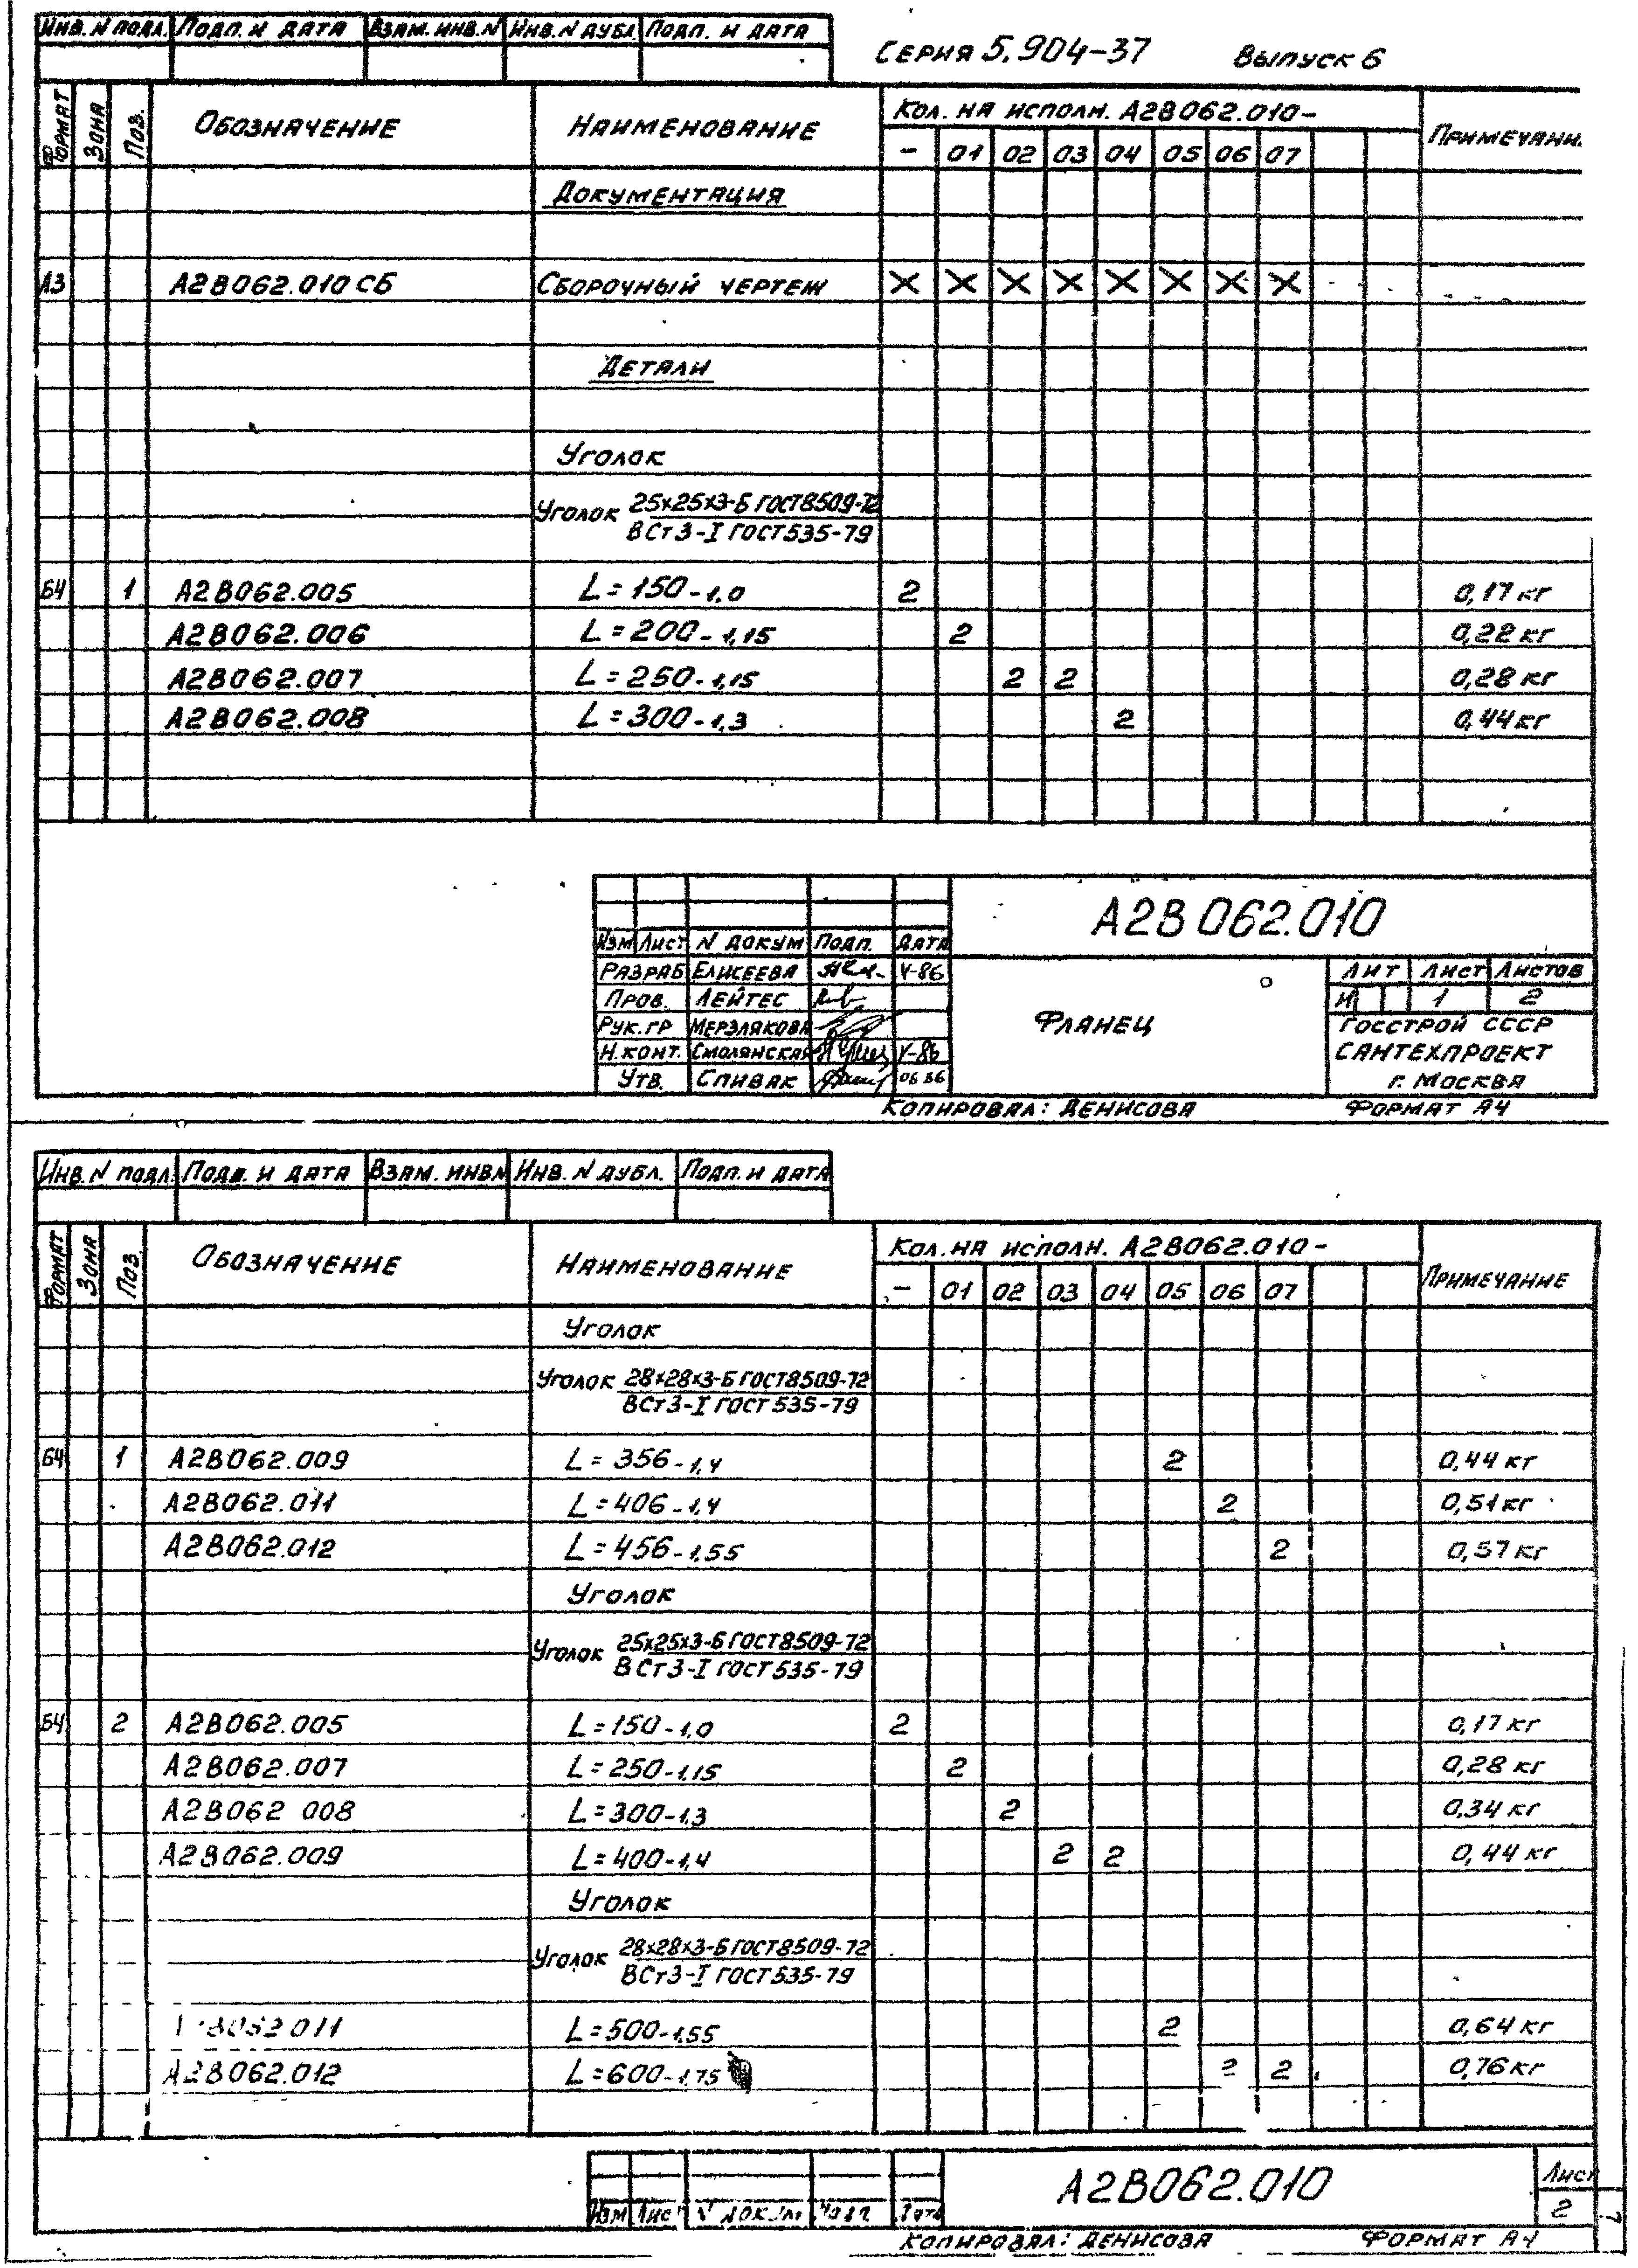 Инв. N подл. Подп. и дата Взам. инв. N Инв. N дубл. Подп. и дата
Серия 5.904-37 Выпуск 6
Формат Зона Поз. Обозначение Наименование Кол. на исполн. А2В062.010- Примечани
- 01 02 03 04 05 06 07
Документация
А3 А2В062.010 СБ Сборочный чертеж X X X X X X X X
Детали
Уголок
Уголок 25х25х3-Б ГОСТ 8509-72
ВСт3-I ГОСТ 535-79
Б4 1 А2В062.005 L=150-1,0 2 0,17 кг
А2В062.006 L=200-1,15 2 0,22 кг
А2В062.007 L=250-1,15 2 2 0,28 кг
А2В062.008 L=300-1,3 2 0,44 кг
А2В 062.010
Изм Лист N докум Подп. Дата
Разраб Елисеева V-86
Пров. Лейтес
Рук. гр Мерзлякова
Н. конт. Смолянская V-86
Утв. Спивак 06 86
Фланец
Лит Лист Листов
И 1 2
Госстрой СССР
Сантехпроект
г. Москва
Копировал: Денисова Формат А4
Инв. N подл. Подп. и дата Взам. инв. N Инв. N дубл. Подп. и дата
Формат Зона Поз. Обозначение Наименование Кол. на исполн. А2В062.010- Примечание
- 01 02 03 04 05 06 07
Уголок
Уголок 28х28х3-Б ГОСТ 8509-72
ВСт3-I ГОСТ 535-79
Б4 1 А2В062.009 L=356-1,4 2 0,44 кг
А2В062.011 L=406-1,4 2 0,51 кг
А2В062.012 L=456-1,55 2 0,57 кг
Уголок
Уголок 25х25х3-Б ГОСТ 8509-72
ВСт3-I ГОСТ 535-79
Б4 2 А2В062.005 L=150-1,0 2 0,17 кг
А2В062.007 L=250-1,15 2 0,28 кг
А2В062 008 L=300-1,3 2 0,34 кг
А2В062.009 L=400-1,4 2 2 0,44 кг
Уголок
Уголок 28х28х3-Б ГОСТ 8509-72
ВСт3-I ГОСТ 535-79
L=500-1,55 2 0,64 кг
А2В062.012 L=600-1,75 2 2 0,76 кг
А2В062.010
Лист
2
Изм Лист N докум Подп Дата
Копировал: Денисова Формат А4